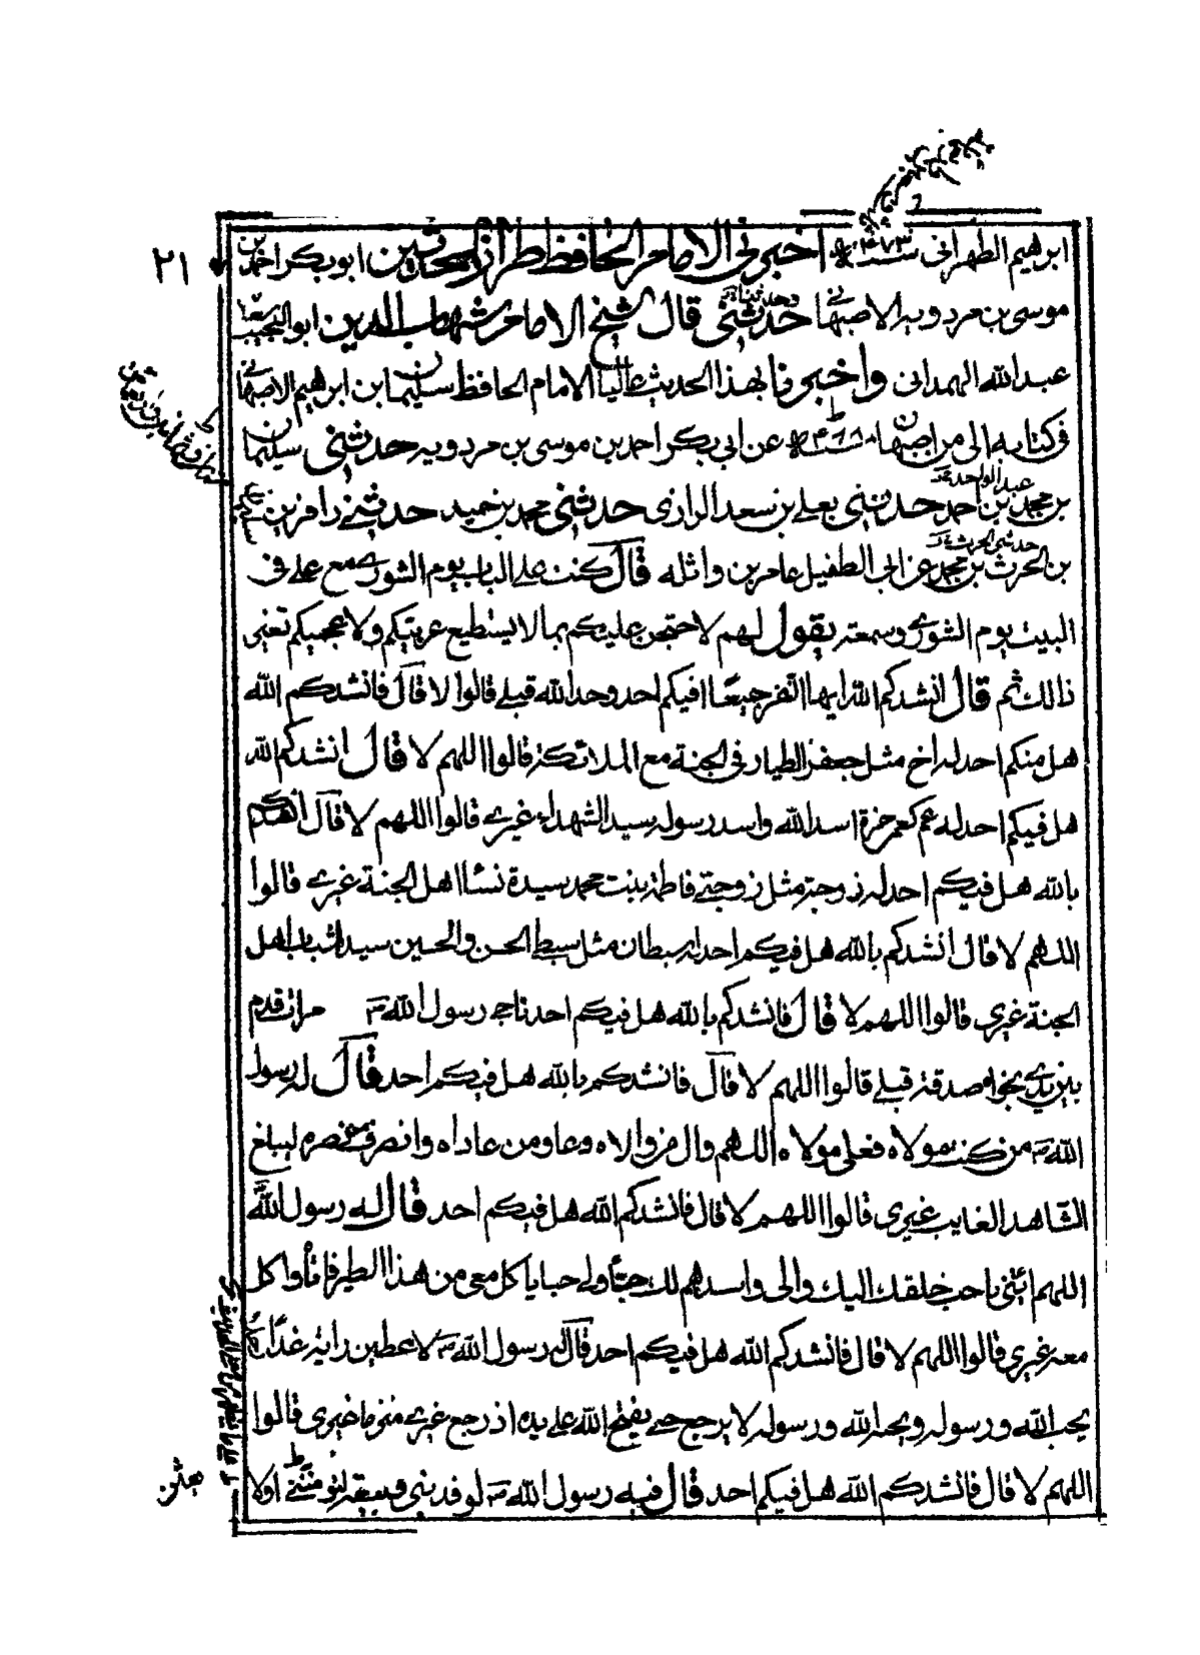 ٢١
ابرهيم الطهرانى سنة ٤٧٣ اخبرنى الامام الحافظ طراز المحدثين ابو بكر احمد بن
موسى بن مردويه الاصبهانى وحدثنا حدثنى قال الشيخ الامام شهاب الدين ابو النجيب سعد
عبد الله الهمدانى واخبرنا بهذا الحديث عاليا الامام الحافظ سليمان ابن ابرهيم الاصبهانى
فى كتابه الى من اصبهان سنة عن ابى بكر احمد بن موسى بن مردويه حدثنى سليمان
بن محمد بن احمد حدثنى يعلى بن سعد الرازى حدثنى محمد بن حميد حدثنى زافر بن
بن الحرث بن محمد عن ابى الطفيل عامر بن واثله قال كنت على الباب يوم الشورى مع على فى
البيت يوم الشورى وسمعته يقول لهم لاحتجن عليكم بما لا يستطيع عربيكم ولا عجميكم تغيير
ذالك ثم قال انشدكم الله ايها النفر جميعا افيكم احد وحد الله قبلى قالوا لا قال فانشدكم الله
هل منكم احد له اخ مثل جعفر الطيار فى الجنة مع الملائكة قالوا اللهم لا قال انشدكم الله
هل فيكم احد له عم كعمى حمزة اسد الله واسد رسوله سيد الشهداء غيرى قالوا اللهم لا قال انشدكم
بالله هل فيكم احد له زوجة مثل زوجتى فاطمة بنت محمد سيدة نسآ اهل الجنة غيرى قالوا
اللهم لا قال انشدكم بالله هل فيكم احد له سبطان مثل سبطى الحسن والحسين سيدا شباب اهل
الجنة غيرى قالوا اللهم لا قال فانشدكم بالله هل فيكم احد ناجى رسول الله مرات قدم
بين يدى نجواه صدقة قبلى قالوا اللهم لا قال فانشدكم بالله هل فيكم احد قال له رسول
الله من كنت مولاه فعلى مولاه اللهم وال من والاه وعاد من عاداه وانصر من نصره ليبلغ
الشاهد الغايب غيرى قالوا اللهم لا قال فانشدكم الله هل فيكم احد قال له رسول الله
اللهم ائتنى باحب خلقك اليك والى واشدهم لك حبا ولى حبا ياكل معى من هذا الطير فاتاه واكل
معه غيرى قالوا اللهم لا قال فانشدكم الله هل فيكم احد قال له رسول الله لاعطين راية غدا
يحب الله ورسوله ويحبه الله ورسوله لا يرجع حتى يفتح الله على يده اذ رجع غيرى منهزما غيرى قالوا
اللهم لا قال فانشدكم الله هل فيكم احد قال فيه رسول الله لوفد بنى وليعة لتنتهن اولا